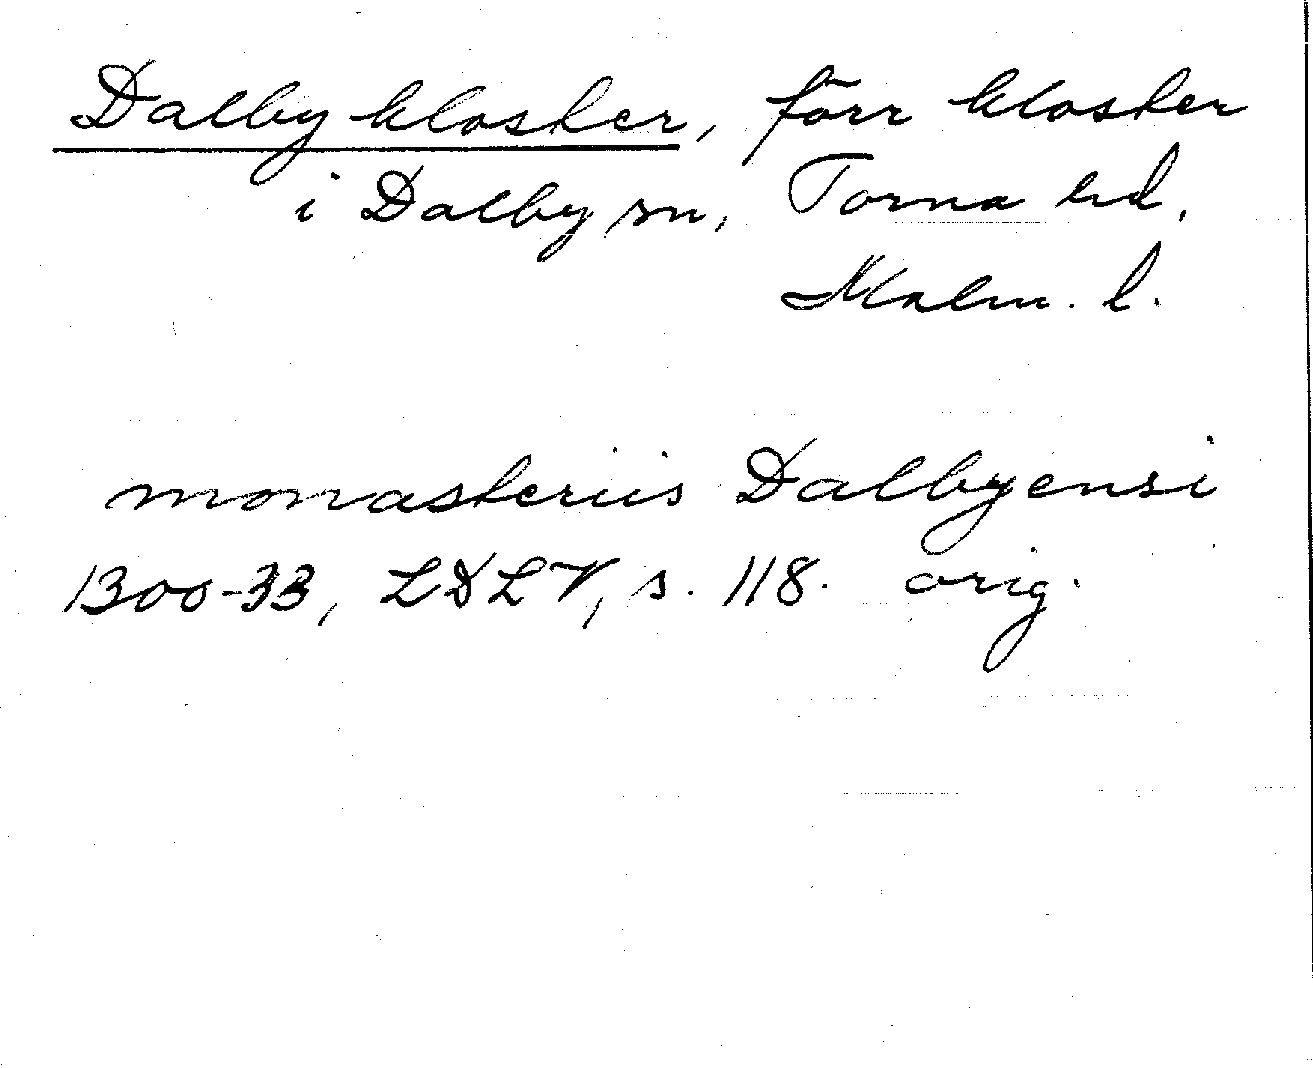 Dalby kloster, förr kloster
i Dalby sn, Torna hd,
Malm. l.
monasteriis Dalbyensi
1300-33, LDLV, s. 118. orig.